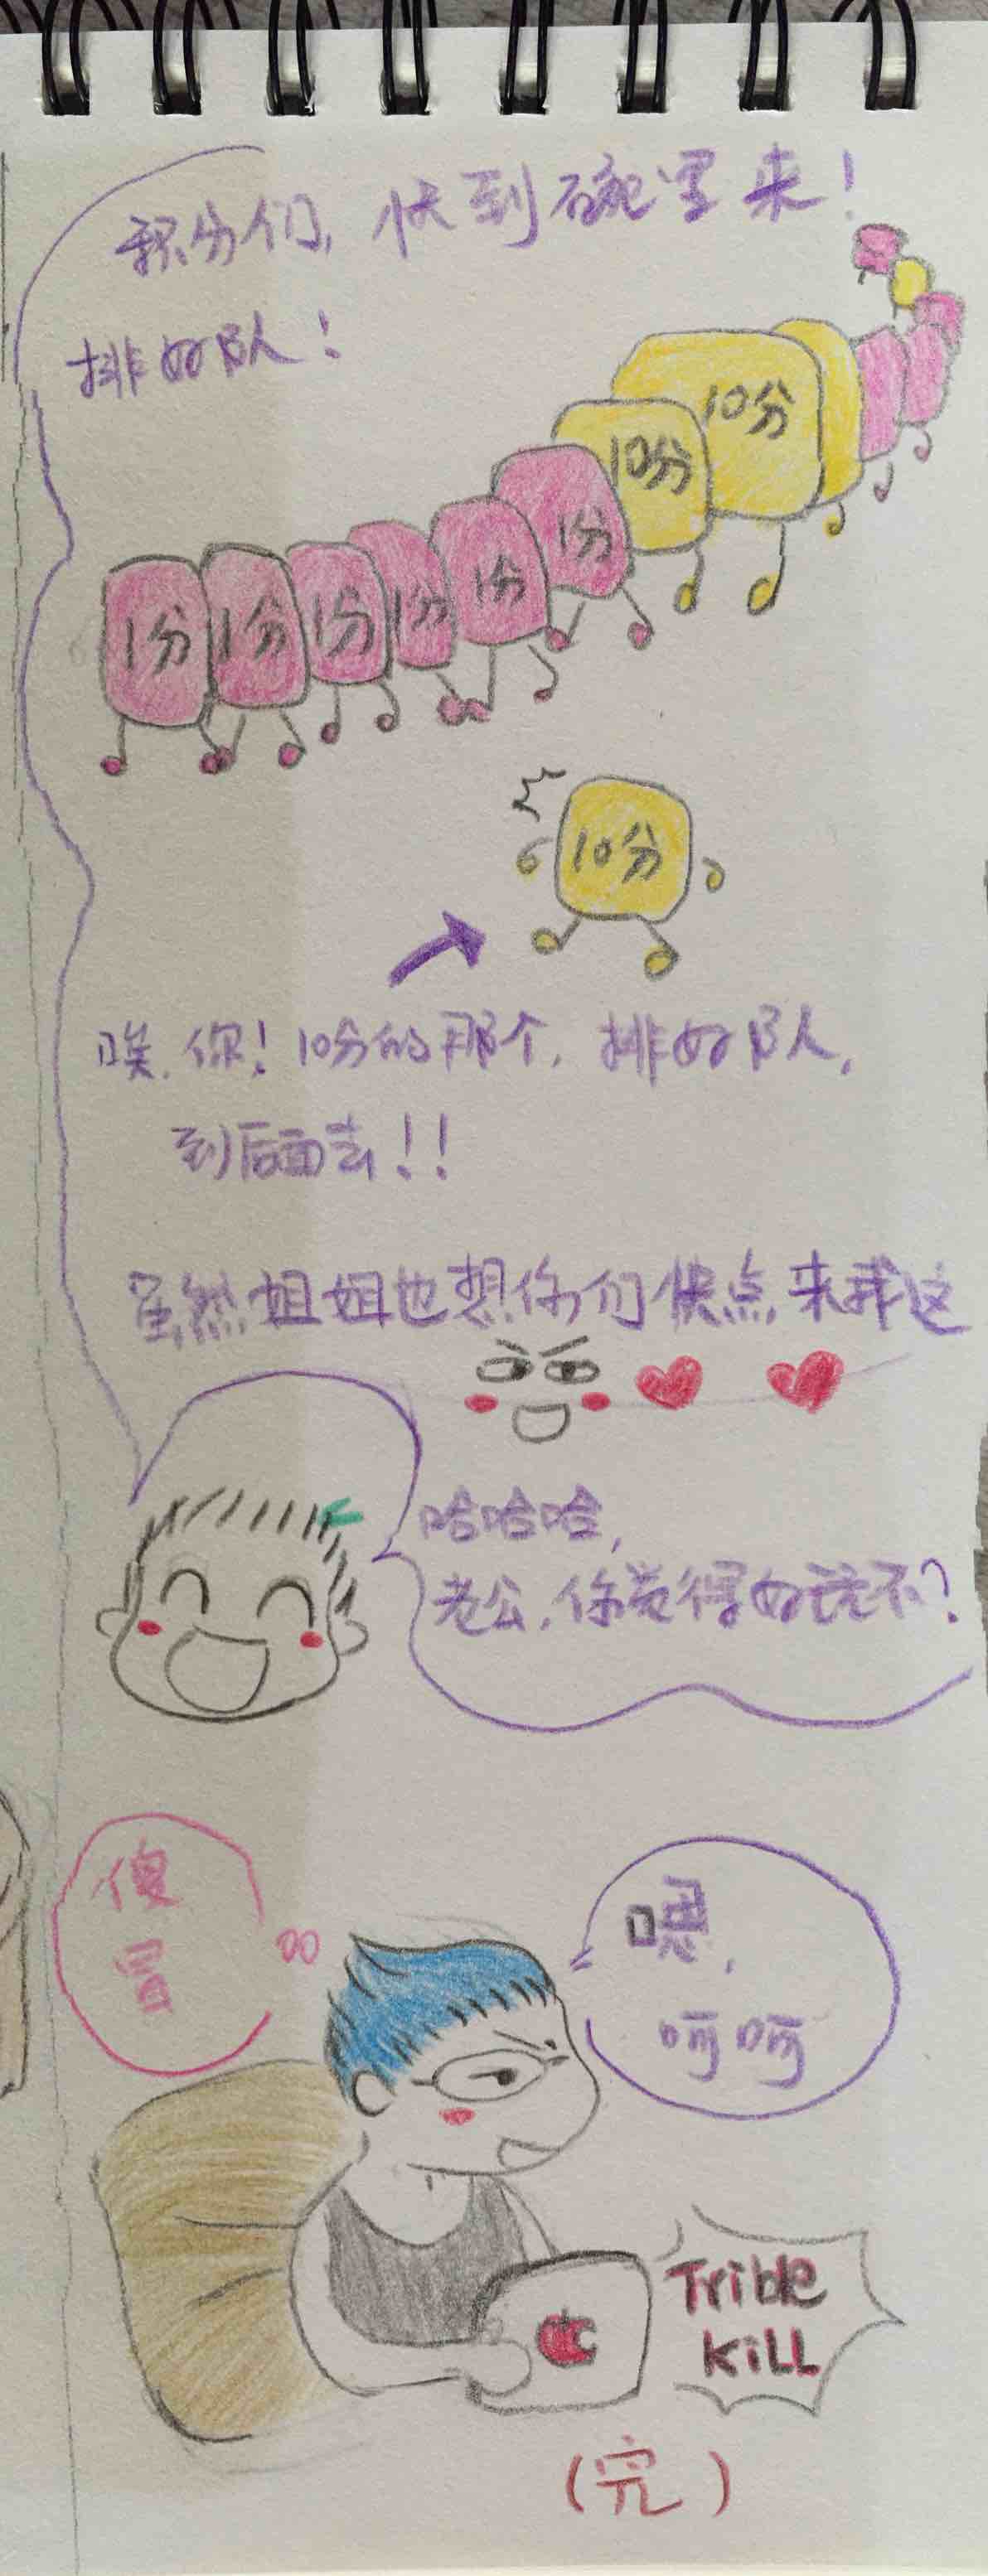 积分们, 快到碗里来!
排好队!
10分
10分
1分
1分
1分
1分
1分
1分
10分
唉, 你! 10分的那个, 排好队,
到后面去!!
虽然姐姐也想你们快点来我这
哈哈哈,
老公, 你觉得好玩不?
傻
冒
嗯,
呵呵
Trible
KiLL
(完)